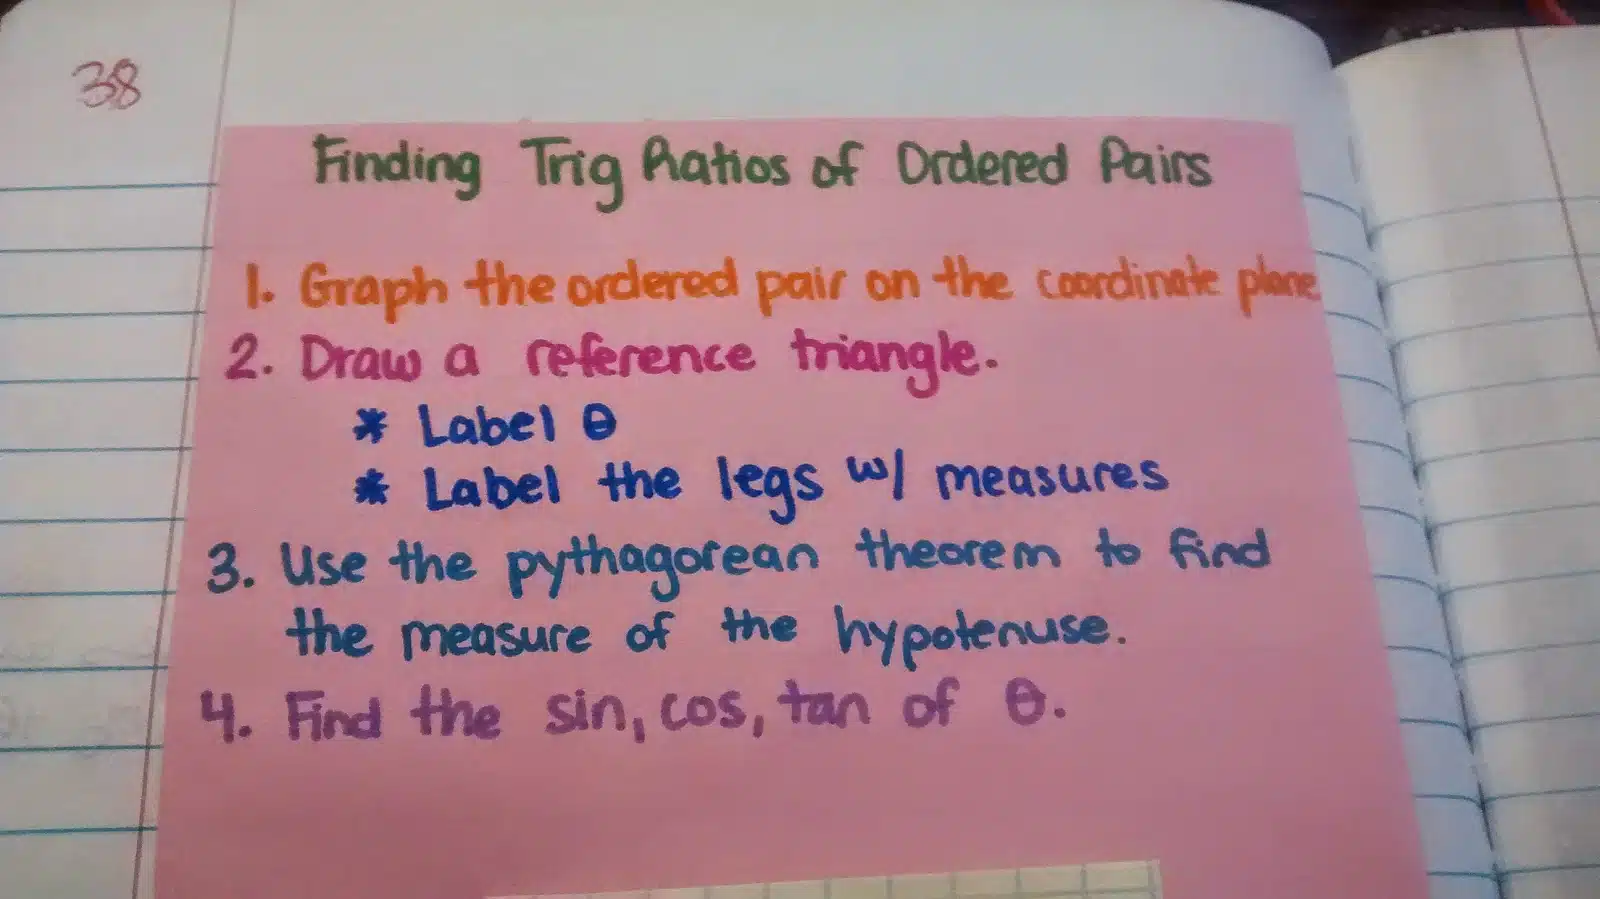 38
Finding Trig Ratios of Ordered Pairs
1. Graph the ordered pair on the coordinate plane
2. Draw a reference triangle.
* Label θ
* Label the legs w/ measures
3. Use the pythagorean theorem to find
the measure of the hypotenuse.
4. Find the sin, cos, tan of θ.